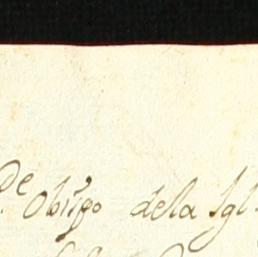 De Obispo dela Igl